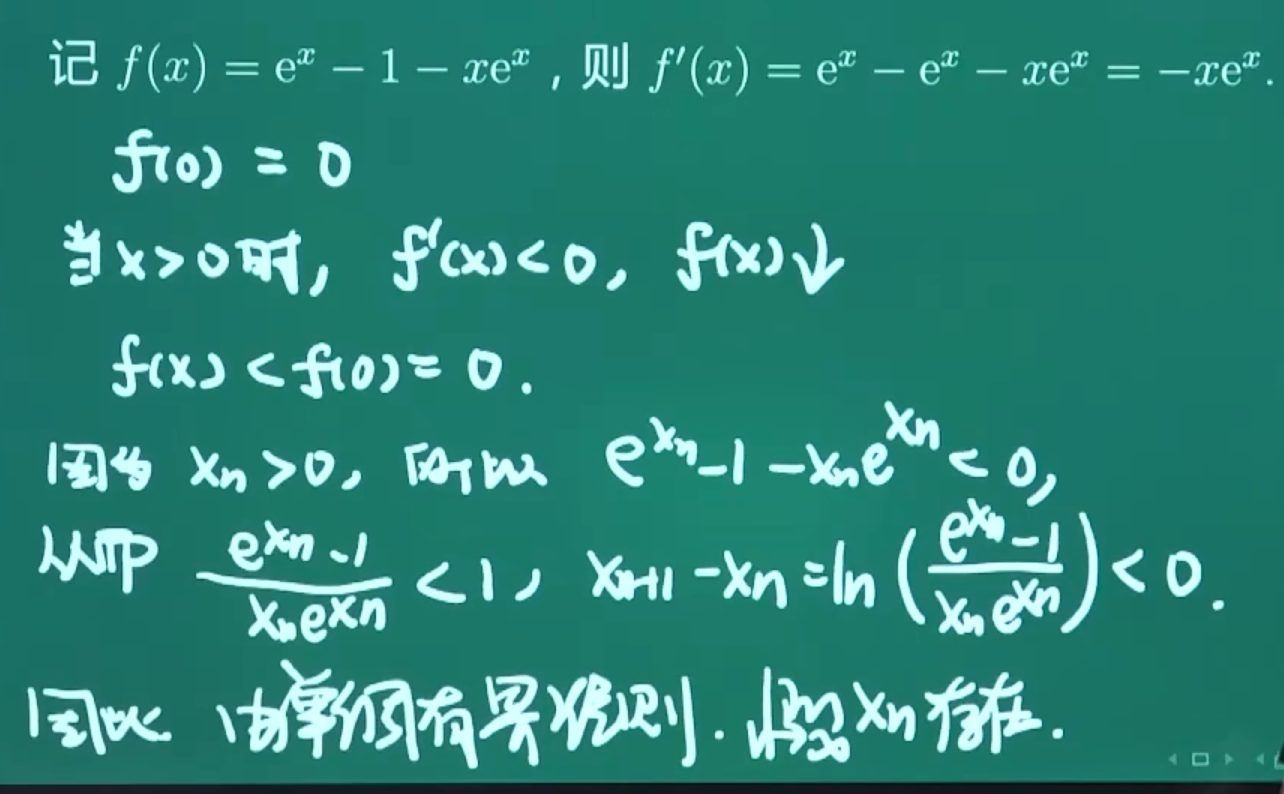 记 f(x) = eˣ − 1 − xeˣ , 则 f′(x) = eˣ − eˣ − xeˣ = −xeˣ.
f(0) = 0
当 x>0 时, f′(x)<0, f(x)↓
f(x) < f(0) = 0.
因为 xₙ>0, 所以 e^{xₙ} − 1 − xₙe^{xₙ} < 0,
从而 (e^{xₙ} − 1)/(xₙe^{xₙ}) < 1, xₙ₊₁ − xₙ = ln((e^{xₙ} − 1)/(xₙe^{xₙ})) < 0.
因此 由单调有界准则. lim_{n→∞} xₙ 存在.